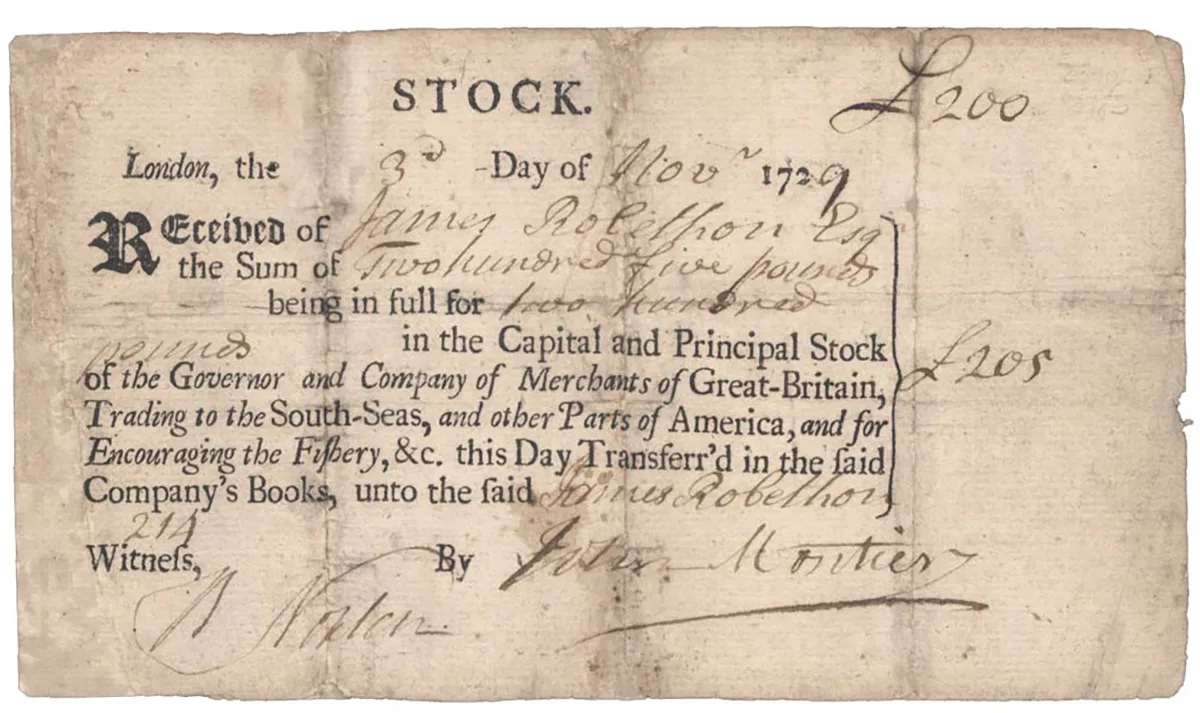 STOCK. £200
London, the 3d Day of Novr 1729
REceived of James Robethon Esqr
the Sum of Two hundred five pounds
being in full for two hundred
pounds in the Capital and Principal Stock
of the Governor and Company of Merchants of Great-Britain, £205
Trading to the South-Seas, and other Parts of America, and for
Encouraging the Fiſhery, &c. this Day Transferr'd in the ſaid
Company's Books, unto the ſaid James Robethon
214
Witneſs, By John Montier
Norton